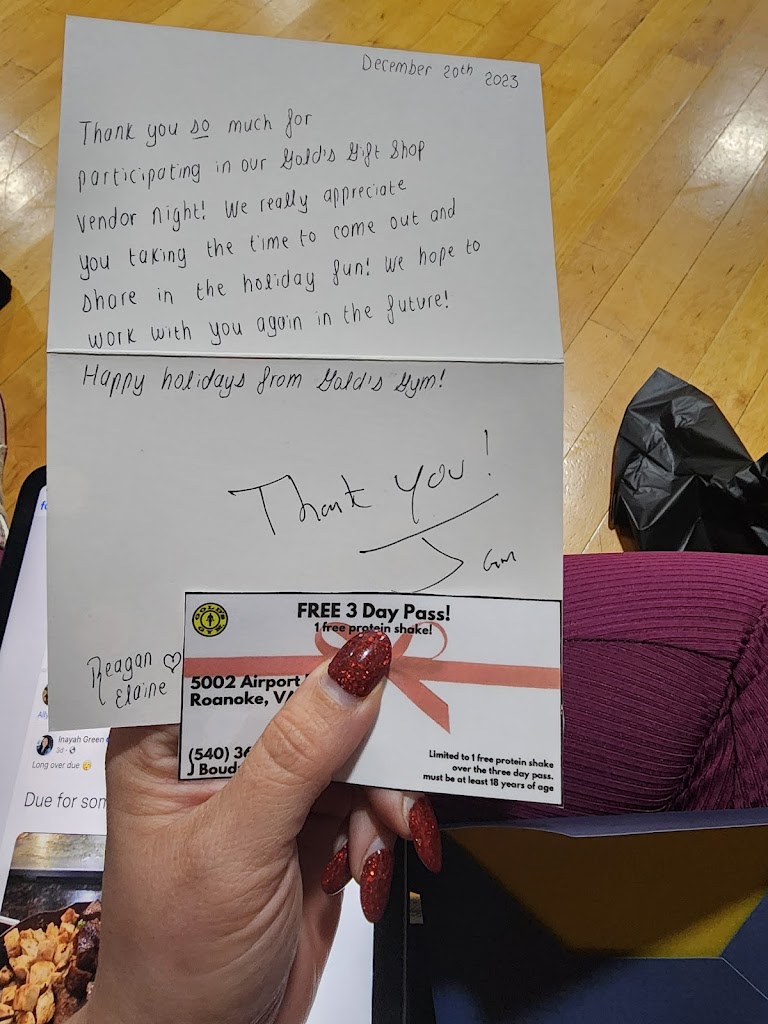 December 20th 2023
Thank you so much for
participating in our Gold's Gift Shop
vendor night! We really appreciate
you taking the time to come out and
share in the holiday fun! We hope to
work with you again in the future!
Happy holidays from Gold's Gym!
Thank you!
J GM
Reagan
Elaine
GOLD'S GYM
FREE 3 Day Pass!
1 free protein shake!
5002 Airport
Roanoke, VA
(540) 36
J Boud
Limited to 1 free protein shake
over the three day pass.
must be at least 18 years of age
Inayah Green
3d
Long over due
Due for som